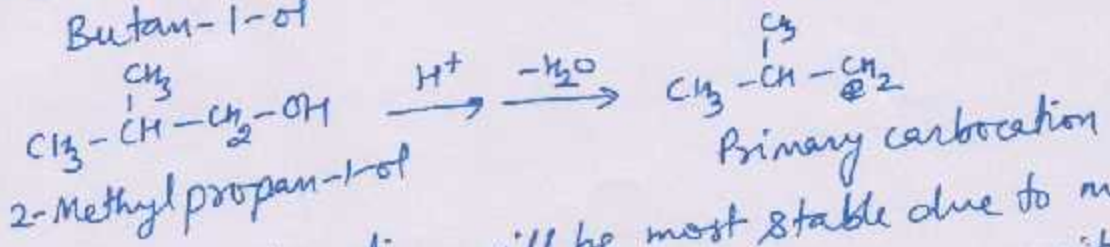 Butan-1-ol
CH3
CH3-CH-CH2-OH H+ -H2O
CH3
CH3-CH-CH2
⊕
2-Methylpropan-1-ol
Primary carbocation
will be most stable due to